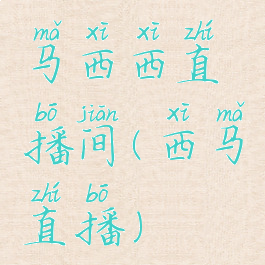 mǎ xī xī zhí
马西西直
bō jiān xī mǎ
播间(西马
zhí bō
直播)